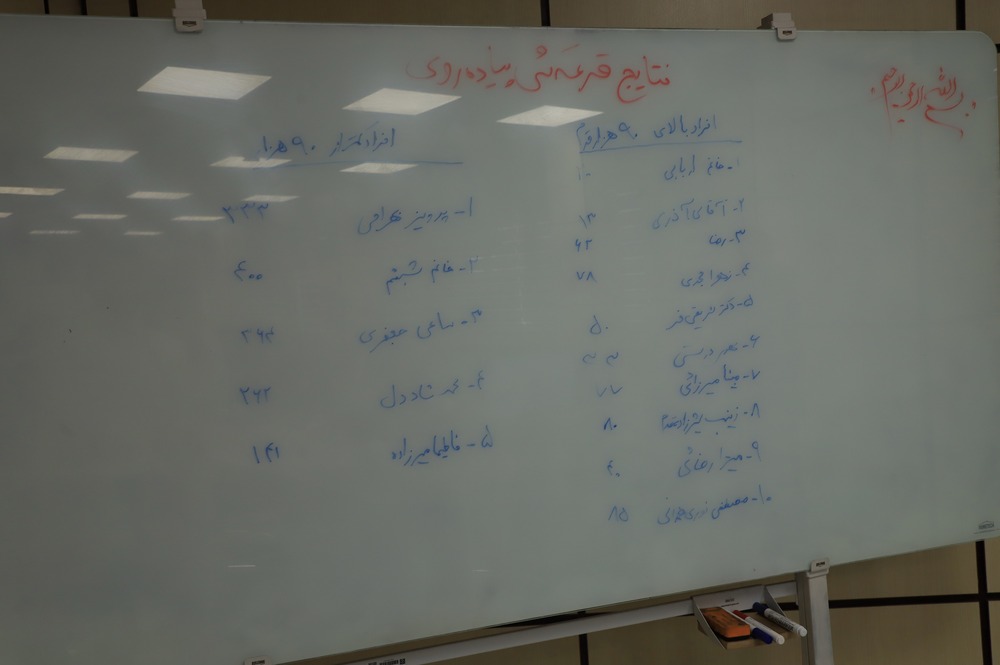 بسم الله الرحمن الرحیم
نتایج قرعه‌کشی پیاده‌روی
افراد بالای ۹۰ هزار قدم
۱- خانم اربابی ۱۰
۲- آقای آذری ۱۳
۳- رضا ۶۲
۴- زهرا ۷۸
۵- دکتر شریفی فر ۵۰
۶- درستی ۳۳
۷- مینا میرزائی ۷۷
۸- زینب ۸۰
۹- میترا رضائی ۴۰
۱۰- مصطفی نوری همدانی ۸۵
افراد کمتر از ۹۰ هزار
۱- پرویز بهرامی ۲۳۳
۲- خانم شبنم ۴۰۰
۳- ساعی جعفری ۲۶۳
۴- محمد شاددل ۲۶۲
۵- فاطیما میرزاده ۱۴۱